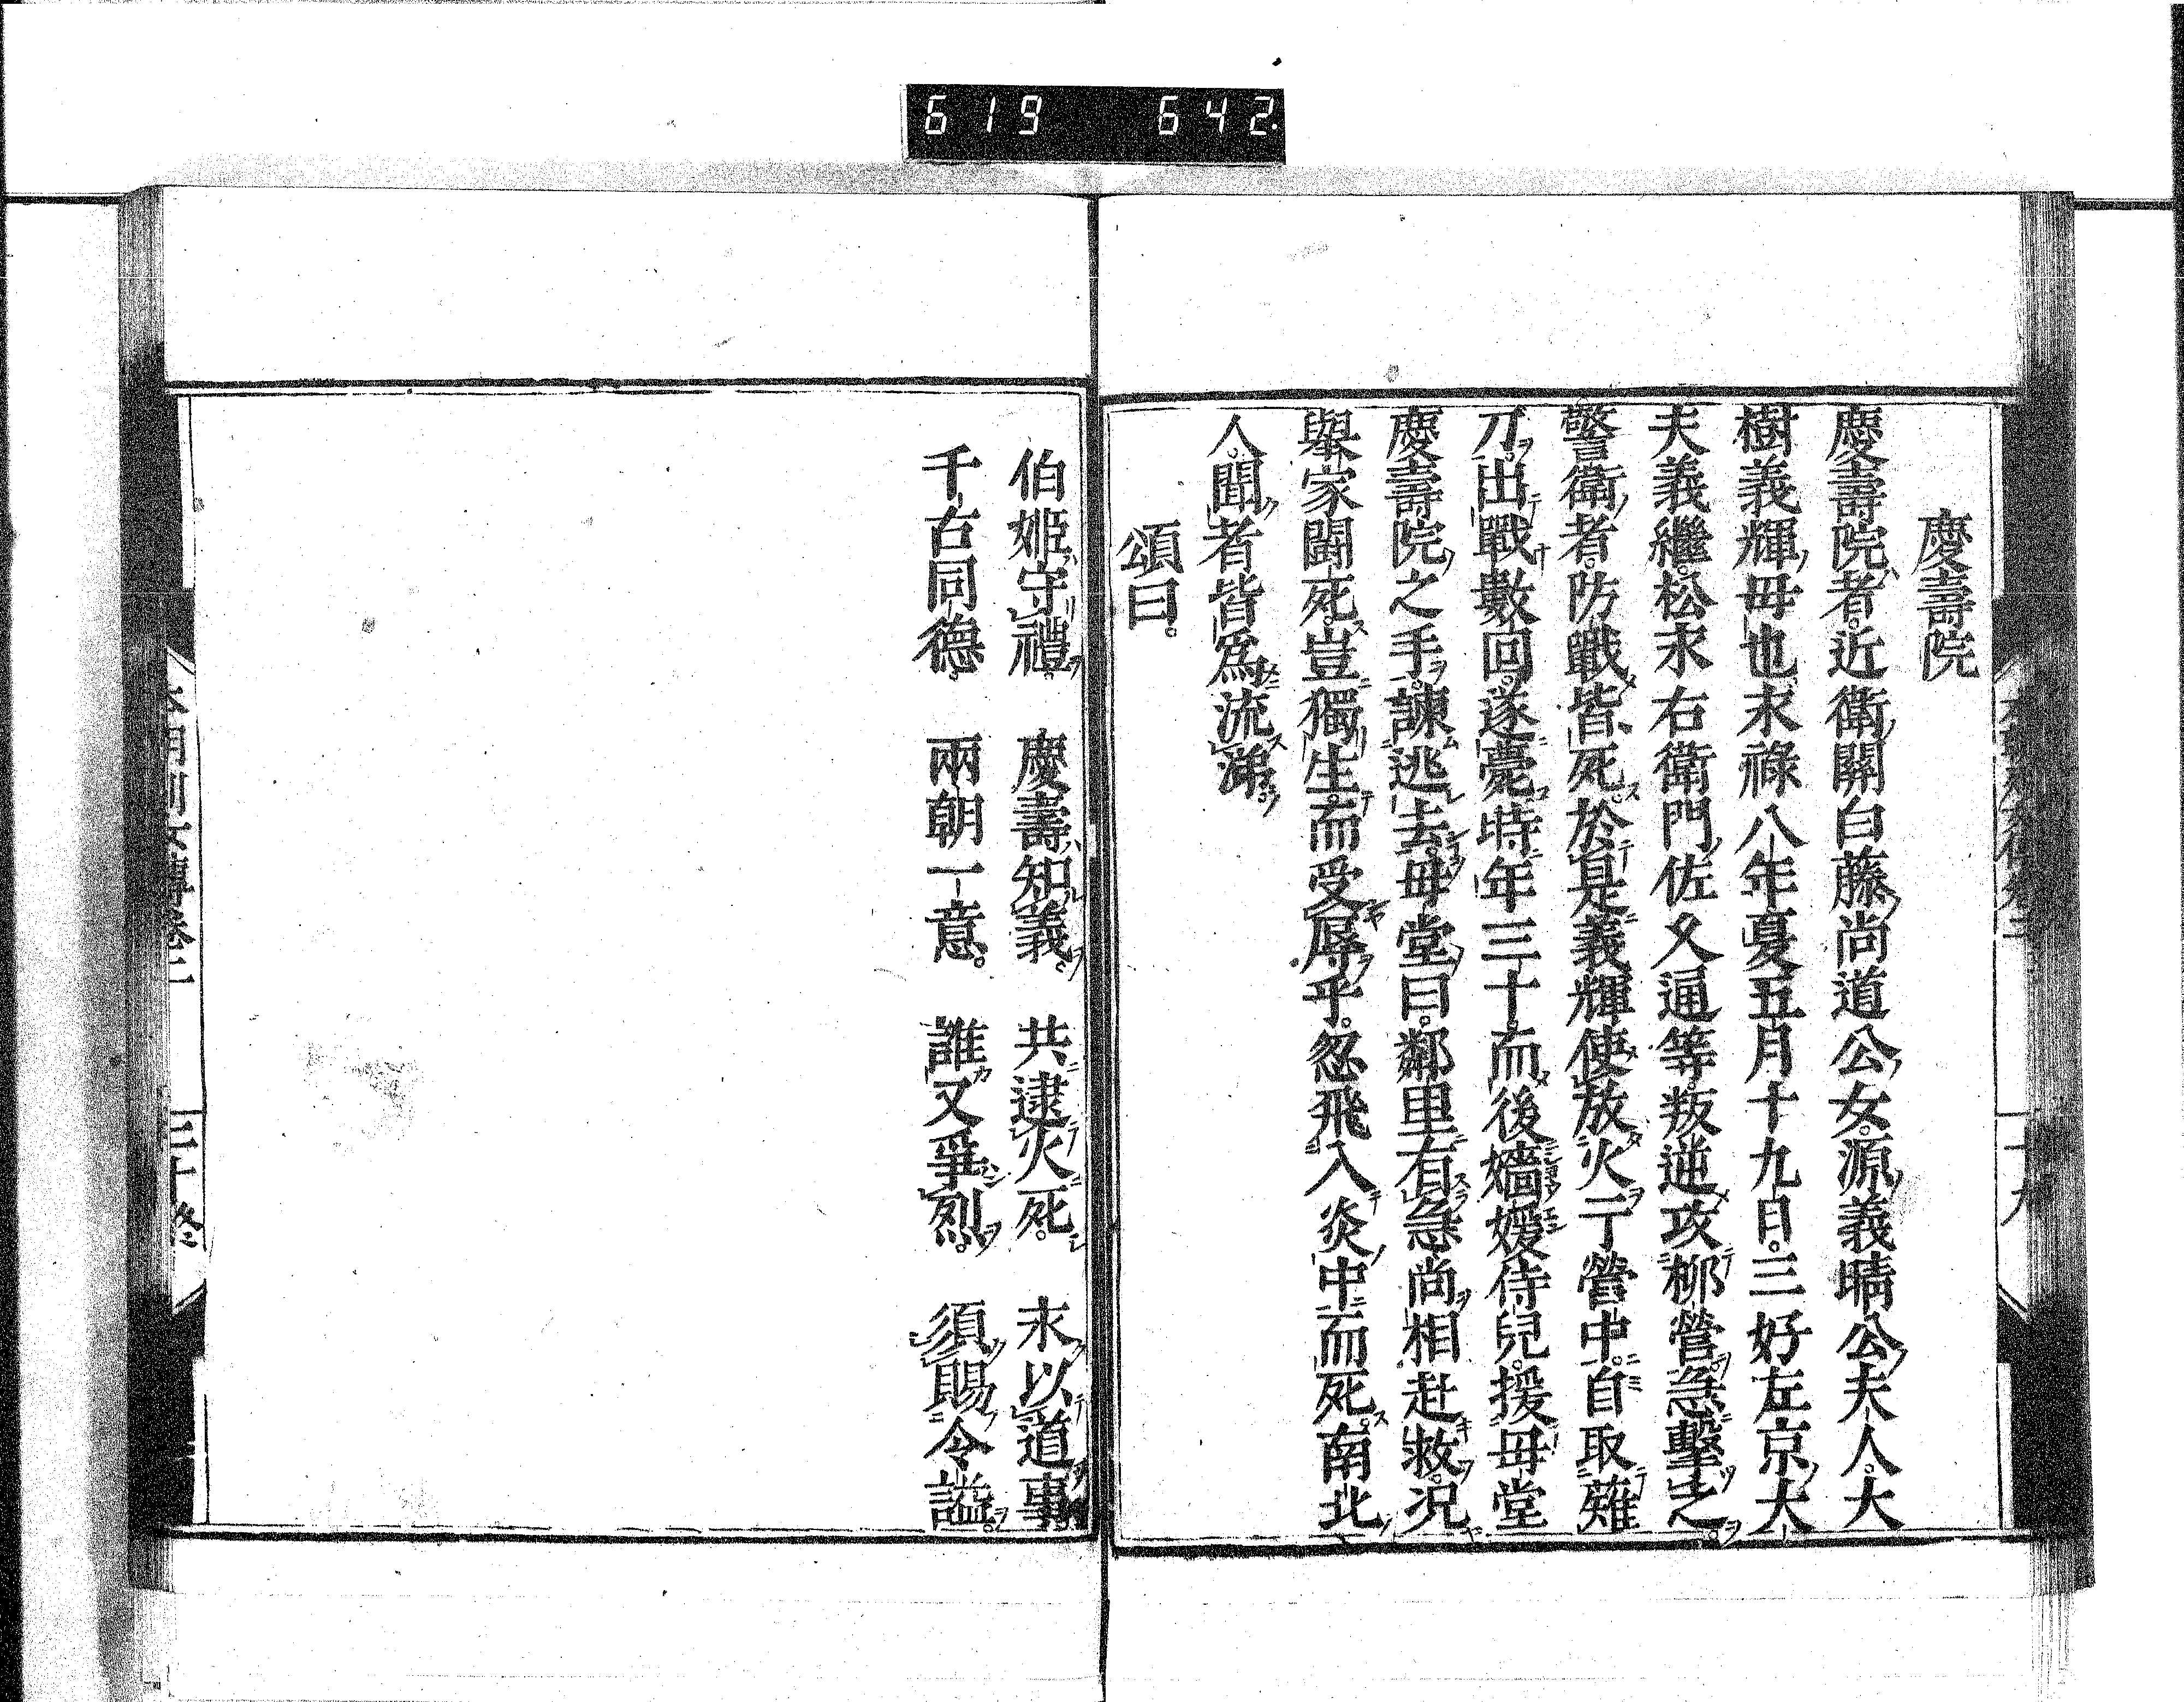 619 642.
慶壽院
慶壽院者。近衛關白藤尚道公女。源義晴公夫人。大
樹義輝母也永祿八年夏五月十九日。三好左京大
夫義繼。松永右衛門佐久通等。叛逆攻柳營。急擊之。
警衛者。防戰皆死。於是義輝使放火于營中。自取薙
刀。出戰數回。遂薨。時年三十。而後嬙媛侍兒。援母堂
慶壽院之手。諫逃去。母堂曰。鄰里有急。尚相赴救。况
舉家鬬死。豈獨生而受辱乎。忽飛入炎中而死。南北
人。聞者皆爲流涕。
頌曰。
伯姬守禮。 慶壽知義。 共逮火死。 永以道事
千古同德。 兩朝一意。 誰又爭烈。 須賜令謚。
三十終